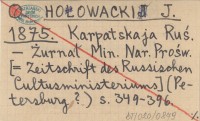 HOŁOWACKI J.
1875. Karpatskaja Ruś.
– Žurnal Min. Nar. Prośw.
[= Zeitschrift des Russischen
Cultusministeriums] (Pe-
tersburg ?) s. 349-396.